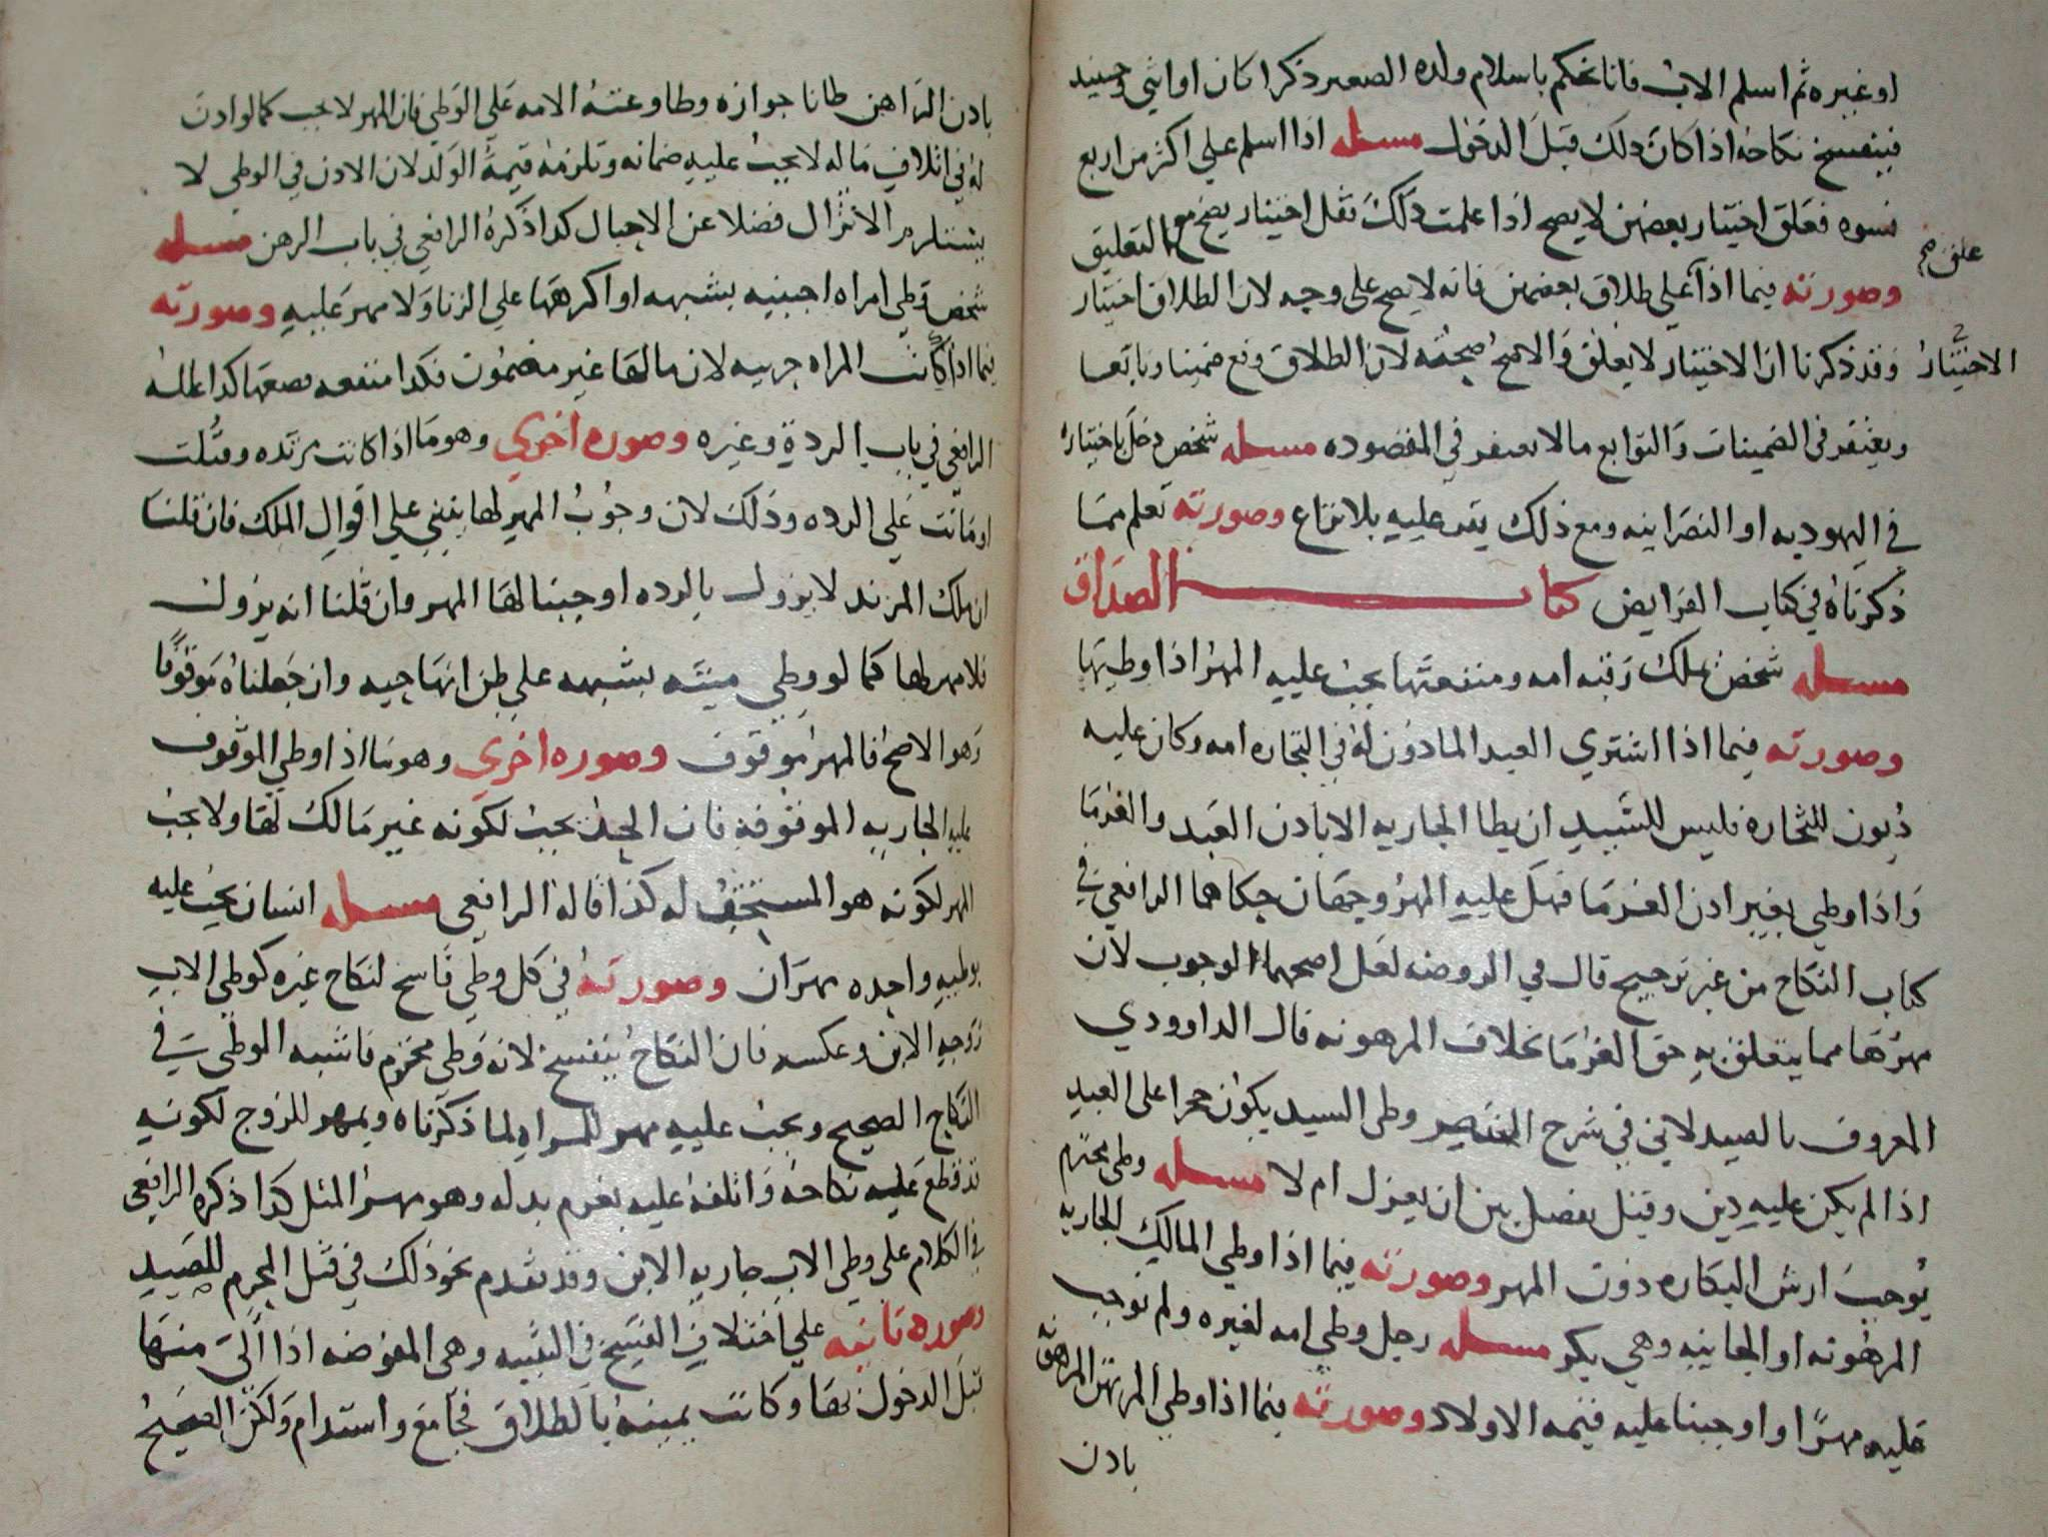 او غيره ثم اسلم الاب فانا نحكم باسلام ولده الصغير ذكرا كان او انثي وحينيد
فينفسخ نكاحه اذا كان ذلك قبل الدخول مسله اذا اسلم علي اكثر من اربع
نسوه فعلق اختيار بعضهن لا يصح اذا علمت ذلك نقل اختيار يصح مع التعليق
علق صح
وصورته فيما اذا علي طلاق بعضهن فانه لا يصح علي وجه لان الطلاق اختيار
وقد ذكرنا ان الاختيار لا يعلق والاصح صحته لان الطلاق وقع ضمينا وتابعا
الاختيار
ويغتفر في الضمينات والتوابع مالا يغتفر في المقصوده مسله شخص دخل باختياره
في اليهوديه او النصرانيه ومع ذلك يقر عليه بلا نزاع وصورته تعلم مما
ذكرناه في كتاب الفرايض كتاب الصداق
مسله شخص ملك رقبه امه ومنفعتها يجب عليه المهر اذا وطيها
وصورته فيما اذا اشتري العبد الماذون له في التجاره امه وكان عليه
ديون للتجاره فليس للسيد ان يطا الجاريه الا باذن العبد والغرما
واذا وطي بغير اذن الغرما فهل عليه المهر وجهان حكاهما الرافعي في
كتاب النكاح من غير ترجيح قال في الروضه لعل اصحهما الوجوب لان
مهرها مما يتعلق به حق الغرما بخلاف المرهونه قال الداوودي
المعروف بالصيدلاني في شرح المختصر وطي السيد يكون حجرا علي العبد
اذا لم يكن عليه دين وقيل يفصل بين ان يعزل ام لا مسله وطي محترم
يوجب ارش البكاره دون المهر وصورته فيما اذا وطي المالك الجاريه
المرهونه او الجانيه وهي بكر مسله رجل وطي امه لغيره ولم نوجب
عليه مهرا واوجبنا عليه قيمه الاولاد وصورته فيما اذا وطي المرتهن المرهونه
باذن
باذن الراهن ظانا جوازه وطاوعته الامه علي الوطي فان المهر لا يجب كما لو اذن
له في اتلاف ماله لا يجب عليه ضمانه وتلزمه قيمة الولد لان الاذن في الوطي لا
يستلزم الانزال فضلا عن الاحبال كذا ذكره الرافعي في باب الرهن مسله
شخص وطي امراه اجنبيه بشبهه او اكرهها علي الزنا ولا مهر عليه وصورته
فيما اذا كانت المراه حربيه لان مالها غير مضمون فكذا منفعه بضعها كذا علله
الرافعي في باب الردة وغيره وصوره اخري وهو ما اذا كانت مرتده وقتلت
او ماتت علي الرده وذلك لان وجوب المهر لها يبني علي اقوال الملك فان قلنا
ان ملك المرتد لا يزول بالرده اوجبنا لها المهر وان قلنا انه يزول
فلا مهر لها كما لو وطي ميته بشبهه علي ظن انها حيه وان جعلناه موقوفا
وهو الاصح فالمهر موقوف وصوره اخري وهو ما اذا وطي الموقوف
عليه الجاريه الموقوفه فان الحد يجب لكونه غير مالك لها ولا يجب
المهر لكونه هو المستحق له كذا قاله الرافعي مسله انسان يجب عليه
بوطييه واحده مهران وصورته في كل وطي فاسخ لنكاح غيره كوطي الاب
زوجه الابن وعكسه فان النكاح ينفسخ لانه وطي محترم فاشبه الوطي في
النكاح الصحيح ويجب عليه مهر للمراه لما ذكرناه ومهر للزوج لكونه
قد قطع عليه نكاحه واتلفه عليه يغرم بدله وهو مهر المثل كذا ذكره الرافعي
في الكلام علي وطي الاب جاريه الابن وقد تقدم نحو ذلك في قتل المحرم للصيد
وصوره ثانيه علي اختلاف النسخ في التنبيه وهي المفوضه اذا الي منها
قبل الدخول بها وكانت يمينه بالطلاق فجامع واستدام ولكن الصحيح